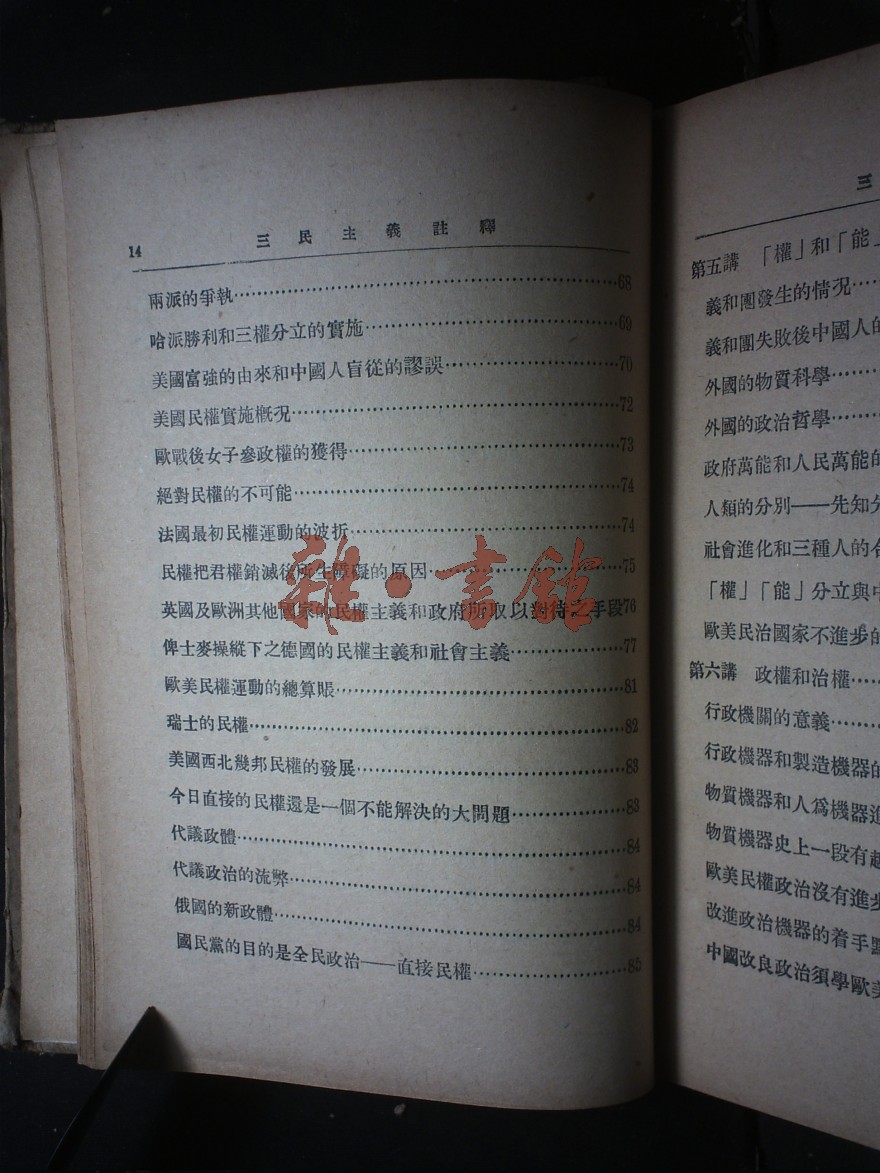 14 三民主義註釋
兩派的爭執……68
哈派勝利和三權分立的實施……69
美國富強的由來和中國人盲從的謬誤……70
美國民權實施槪況……72
歐戰後女子參政權的獲得……73
絕對民權的不可能……74
法國最初民權運動的波折……74
民權把君權銷滅後所生障礙的原因……75
英國及歐洲其他國家的民權主義和政府所取以對待之手段76
俾士麥操縱下之德國的民權主義和社會主義……77
歐美民權運動的總算賬……81
瑞士的民權……82
美國西北幾邦民權的發展……83
今日直接的民權還是一個不能解決的大問題……83
代議政體……84
代議政治的流弊……84
俄國的新政體……84
國民黨的目的是全民政治——直接民權……85
雜·書館
三
第五講 「權」和「能」
義和團發生的情况……
義和團失敗後中國人的
外國的物質科學……
外國的政治哲學……
政府萬能和人民萬能的
人類的分別——先知
社會進化和三種人的
「權」「能」分立與中
歐美民治國家不進步的
第六講 政權和治權……
行政機關的意義……
行政機器和製造機器的
物質機器和人爲機器進
物質機器史上一段有趣
歐美民權政治沒有進步
改進政治機器的着手點
中國改良政治須學歐美